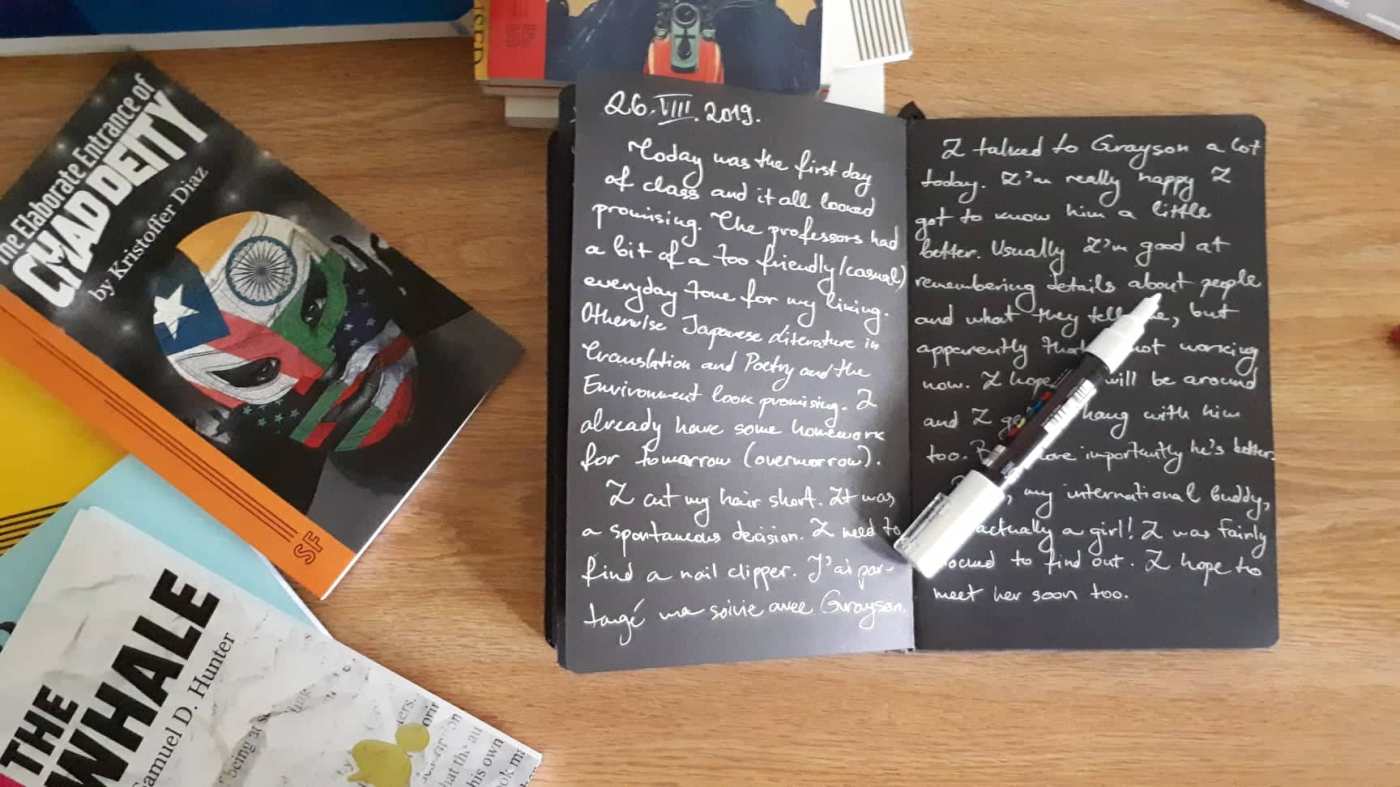 The Elaborate Entrance of
CHAD DEITY
by Kristoffer Diaz
SF
THE
WHALE
Samuel D. Hunter
26.VIII.2019.
Today was the first day
of class and it all looked
promising. The professors had
a bit of a too friendly/casual)
everyday tone for my liking.
Otherwise Japanese literature in
Translation and Poetry and the
Environment look promising. I
already have some homework
for tomorrow (overmorrow).
I cut my hair short. It was
a spontaneous decision. I need to
find a nail clipper. J'ai par-
tagé ma soirie avec Grayson.
I talked to Grayson a lot
today. I'm really happy I
got to know him a little
better. Usually I'm good at
remembering details about people
and what they tell me, but
apparently not working
now. I hope will be around
and I hang with him
too. importantly he's better.
, my international buddy,
actually a girl! I was fairly
to find out. I hope to
meet her soon too.